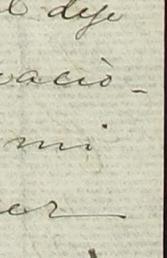 dije
vació-
mi
er